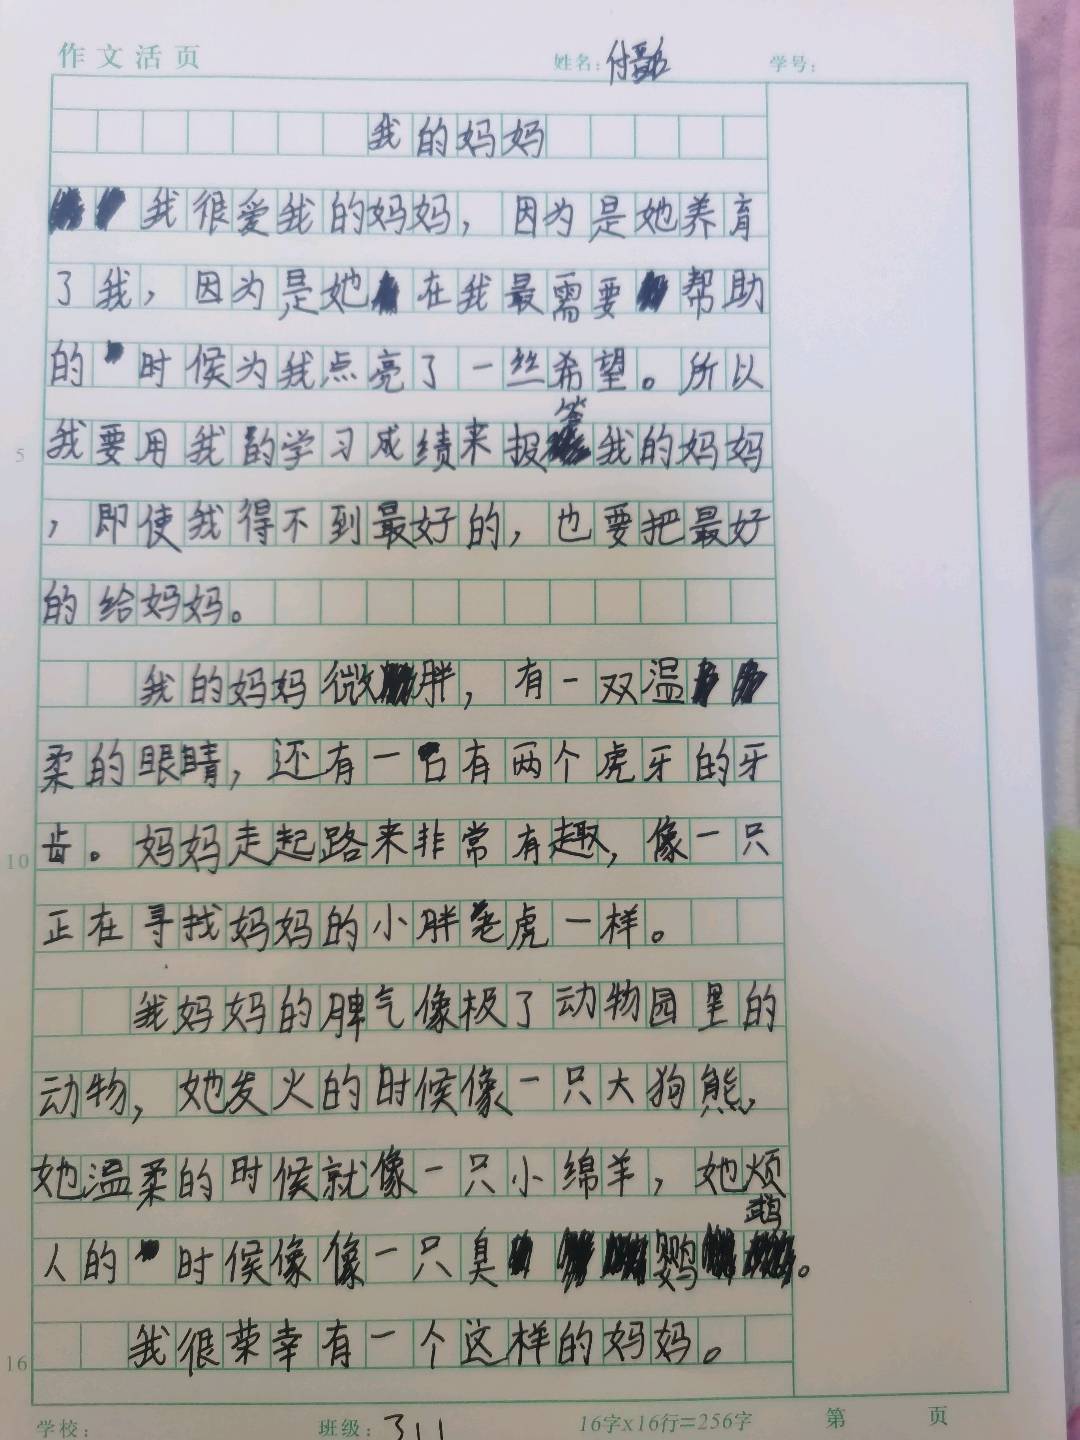 作文活页 姓名: 付 学号:
我的妈妈
我很爱我的妈妈，因为是她养育
了我，因为是她在我最需要帮助
的时候为我点亮了一丝希望。所以
我要用我的学习成绩来报答我的妈妈
，即使我得不到最好的，也要把最好
5
的给妈妈。
我的妈妈微胖，有一双温
柔的眼睛，还有一口有两个虎牙的牙
齿。妈妈走起路来非常有趣，像一只
10
正在寻找妈妈的小胖老虎一样。
我妈妈的脾气像极了动物园里的
动物，她发火的时候像一只大狗熊，
她温柔的时候就像一只小绵羊，她烦
人的时候像像一只臭鹦鹉。
我很荣幸有一个这样的妈妈。
16
学校: 班级: 311 16字x16行=256字 第 页